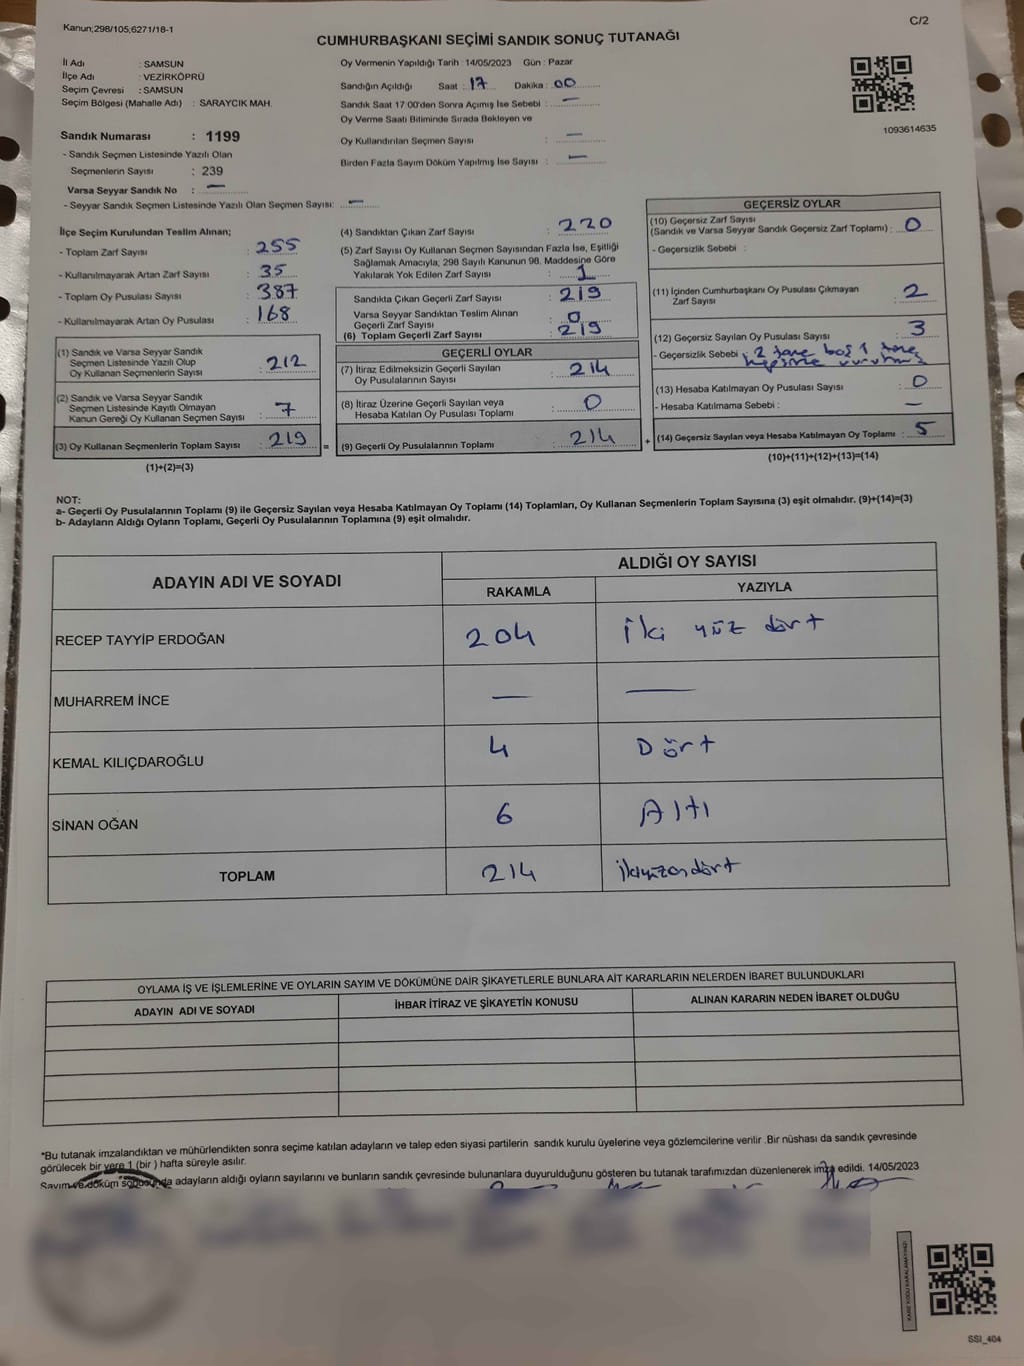 Kanun;298/105;6271/18-1
C/2
CUMHURBAŞKANI SEÇİMİ SANDIK SONUÇ TUTANAĞI
İl Adı : SAMSUN
İlçe Adı : VEZİRKÖPRÜ
Seçim Çevresi : SAMSUN
Seçim Bölgesi (Mahalle Adı) : SARAYCIK MAH.
Sandık Numarası : 1199
- Sandık Seçmen Listesinde Yazılı Olan
Seçmenlerin Sayısı : 239
Varsa Seyyar Sandık No : —
- Seyyar Sandık Seçmen Listesinde Yazılı Olan Seçmen Sayısı: —
Oy Vermenin Yapıldığı Tarih : 14/05/2023 Gün : Pazar
Sandığın Açıldığı Saat : 17 Dakika : 00
Sandık Saat 17:00'den Sonra Açmış İse Sebebi : —
Oy Verme Saati Bitiminde Sırada Bekleyen ve
Oy Kullandırılan Seçmen Sayısı : —
Birden Fazla Sayım Döküm Yapılmış İse Sayısı : —
1093614635
İlçe Seçim Kurulundan Teslim Alınan;
- Toplam Zarf Sayısı : 255
- Kullanılmayarak Artan Zarf Sayısı : 35
- Toplam Oy Pusulası Sayısı : 387
- Kullanılmayarak Artan Oy Pusulası : 168
(1) Sandık ve Varsa Seyyar Sandık
Seçmen Listesinde Yazılı Olup
Oy Kullanan Seçmenlerin Sayısı : 212
(2) Sandık ve Varsa Seyyar Sandık
Seçmen Listesinde Kayıtlı Olmayan
Kanun Gereği Oy Kullanan Seçmen Sayısı : 7
(3) Oy Kullanan Seçmenlerin Toplam Sayısı : 219 =
(1)+(2)=(3)
(4) Sandıktan Çıkan Zarf Sayısı : 220
(5) Zarf Sayısı Oy Kullanan Seçmen Sayısından Fazla İse, Eşitliği
Sağlamak Amacıyla, 298 Sayılı Kanunun 98. Maddesine Göre
Yakılarak Yok Edilen Zarf Sayısı : 1
Sandıkta Çıkan Geçerli Zarf Sayısı : 219
Varsa Seyyar Sandıktan Teslim Alınan
Geçerli Zarf Sayısı : 0
(6) Toplam Geçerli Zarf Sayısı : 219
GEÇERLİ OYLAR
(7) İtiraz Edilmeksizin Geçerli Sayılan
Oy Pusulalarının Sayısı : 214
(8) İtiraz Üzerine Geçerli Sayılan veya
Hesaba Katılan Oy Pusulası Toplamı : 0
(9) Geçerli Oy Pusulalarının Toplamı : 214 +
GEÇERSİZ OYLAR
(10) Geçersiz Zarf Sayısı
(Sandık ve Varsa Seyyar Sandık Geçersiz Zarf Toplamı) : 0
- Geçersizlik Sebebi :
(11) İçinden Cumhurbaşkanı Oy Pusulası Çıkmayan
Zarf Sayısı : 2
(12) Geçersiz Sayılan Oy Pusulası Sayısı : 3
- Geçersizlik Sebebi : 2 tane boş 1 tane
hepsine vurulmuş
(13) Hesaba Katılmayan Oy Pusulası Sayısı : 0
- Hesaba Katılmama Sebebi : —
(14) Geçersiz Sayılan veya Hesaba Katılmayan Oy Toplamı : 5
(10)+(11)+(12)+(13)=(14)
NOT:
a- Geçerli Oy Pusulalarının Toplamı (9) ile Geçersiz Sayılan veya Hesaba Katılmayan Oy Toplamı (14) Toplamları, Oy Kullanan Seçmenlerin Toplam Sayısına (3) eşit olmalıdır. (9)+(14)=(3)
b- Adayların Aldığı Oyların Toplamı, Geçerli Oy Pusulalarının Toplamına (9) eşit olmalıdır.
ADAYIN ADI VE SOYADI
ALDIĞI OY SAYISI
RAKAMLA YAZIYLA
RECEP TAYYİP ERDOĞAN 204 İki yüz dört
MUHARREM İNCE — —
KEMAL KILIÇDAROĞLU 4 Dört
SİNAN OĞAN 6 Altı
TOPLAM 214 ikiyüzondört
OYLAMA İŞ VE İŞLEMLERİNE VE OYLARIN SAYIM VE DÖKÜMÜNE DAİR ŞİKAYETLERLE BUNLARA AİT KARARLARIN NELERDEN İBARET BULUNDUKLARI
ADAYIN ADI VE SOYADI İHBAR İTİRAZ VE ŞİKAYETİN KONUSU ALINAN KARARIN NEDEN İBARET OLDUĞU
*Bu tutanak imzalandıktan ve mühürlendikten sonra seçime katılan adayların ve talep eden siyasi partilerin sandık kurulu üyelerine veya gözlemcilerine verilir .Bir nüshası da sandık çevresinde
görülecek bir yere 1 (bir ) hafta süreyle asılır.
Sayım ve döküm sonucunda adayların aldığı oyların sayılarını ve bunların sandık çevresinde bulunanlara duyurulduğunu gösteren bu tutanak tarafımızdan düzenlenerek imza edildi. 14/05/2023
KARE KODU KARALAMAYINIZ!
SSI_404